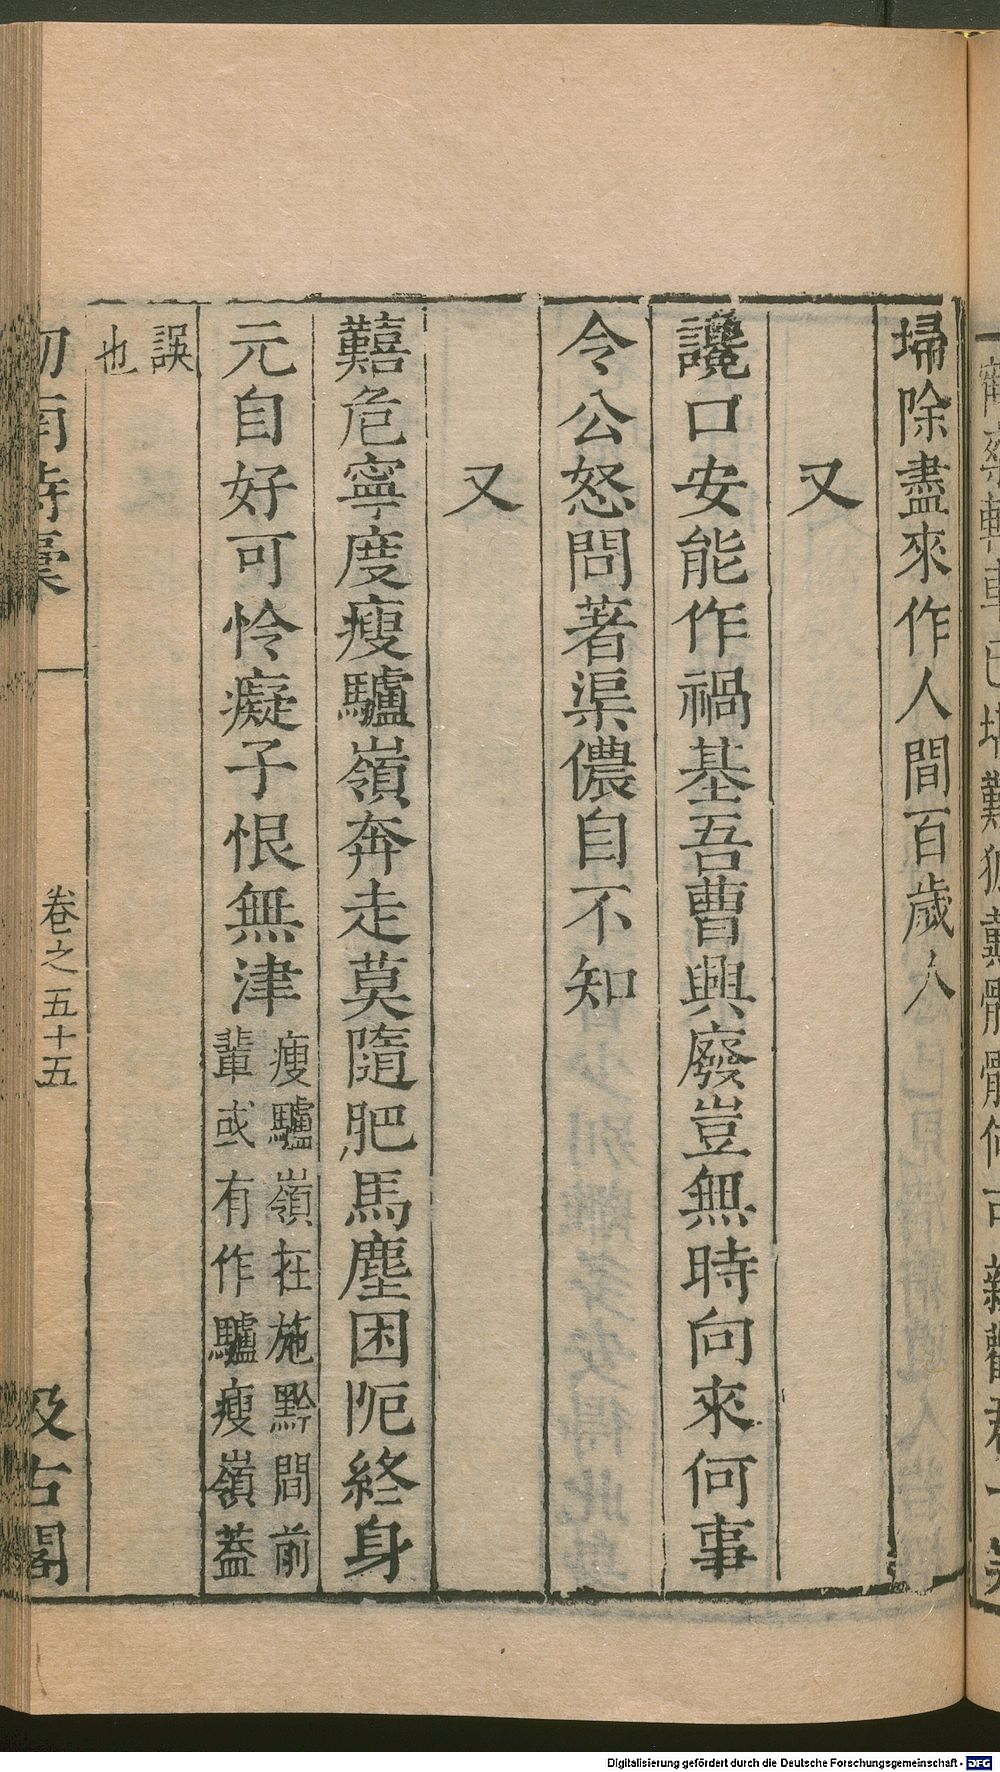 埽除盡來作人間百歲人
又
讒口安能作禍基吾曹興廢豈無時向來何事
令公怒問著渠儂自不知
又
囏危寧度瘦驢嶺奔走莫隨肥馬塵困阨終身
元自好可怜癡子恨無津
瘦驢嶺在施黔間前
輩或有作驢瘦嶺蓋
誤
也
卷之五十五
汲古閣
Digitalisierung gefördert durch die Deutsche Forschungsgemeinschaft - DFG